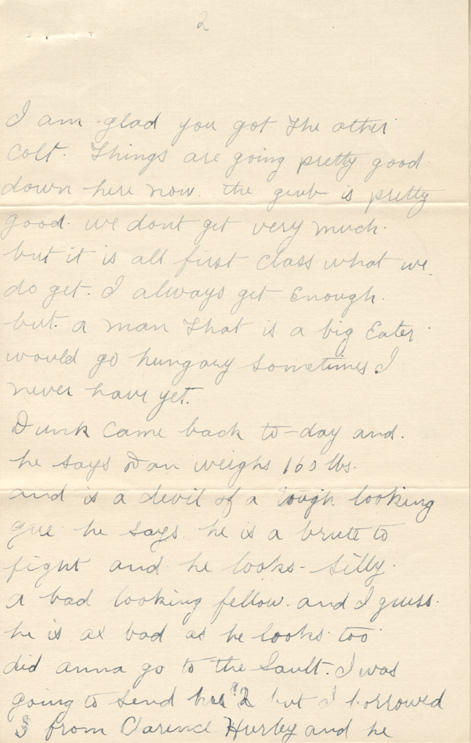 2
I am glad you got the other
colt. Things are going pretty good
down here now. the grub is pretty
good. we dont get very much.
but it is all first class what we
do get. I always get Enough.
but. a man that is a big Eater
would go hungary sometimes I
never have yet.
Dunk came back to-day and.
he says Dan weighs 160 lbs.
and is a devil of a tough looking
gue he says he is a brute to
fight and he looks. Silly.
a bad looking fellow. and I guess.
he is as bad as he looks too
did anna go to the Sault. I was
going to send her $2 but I borrowed
3 from Clarence Hurley and he